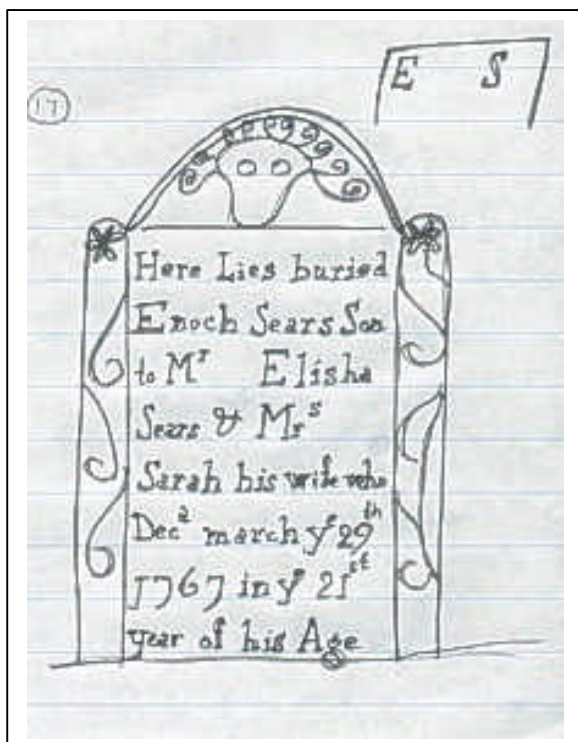 17
E S
Here Lies buried
Enoch Sears Son
to Mr Elisha
Sears & Mrs
Sarah his wife who
Decd march ye 29th
1767 in ye 21st
year of his Age